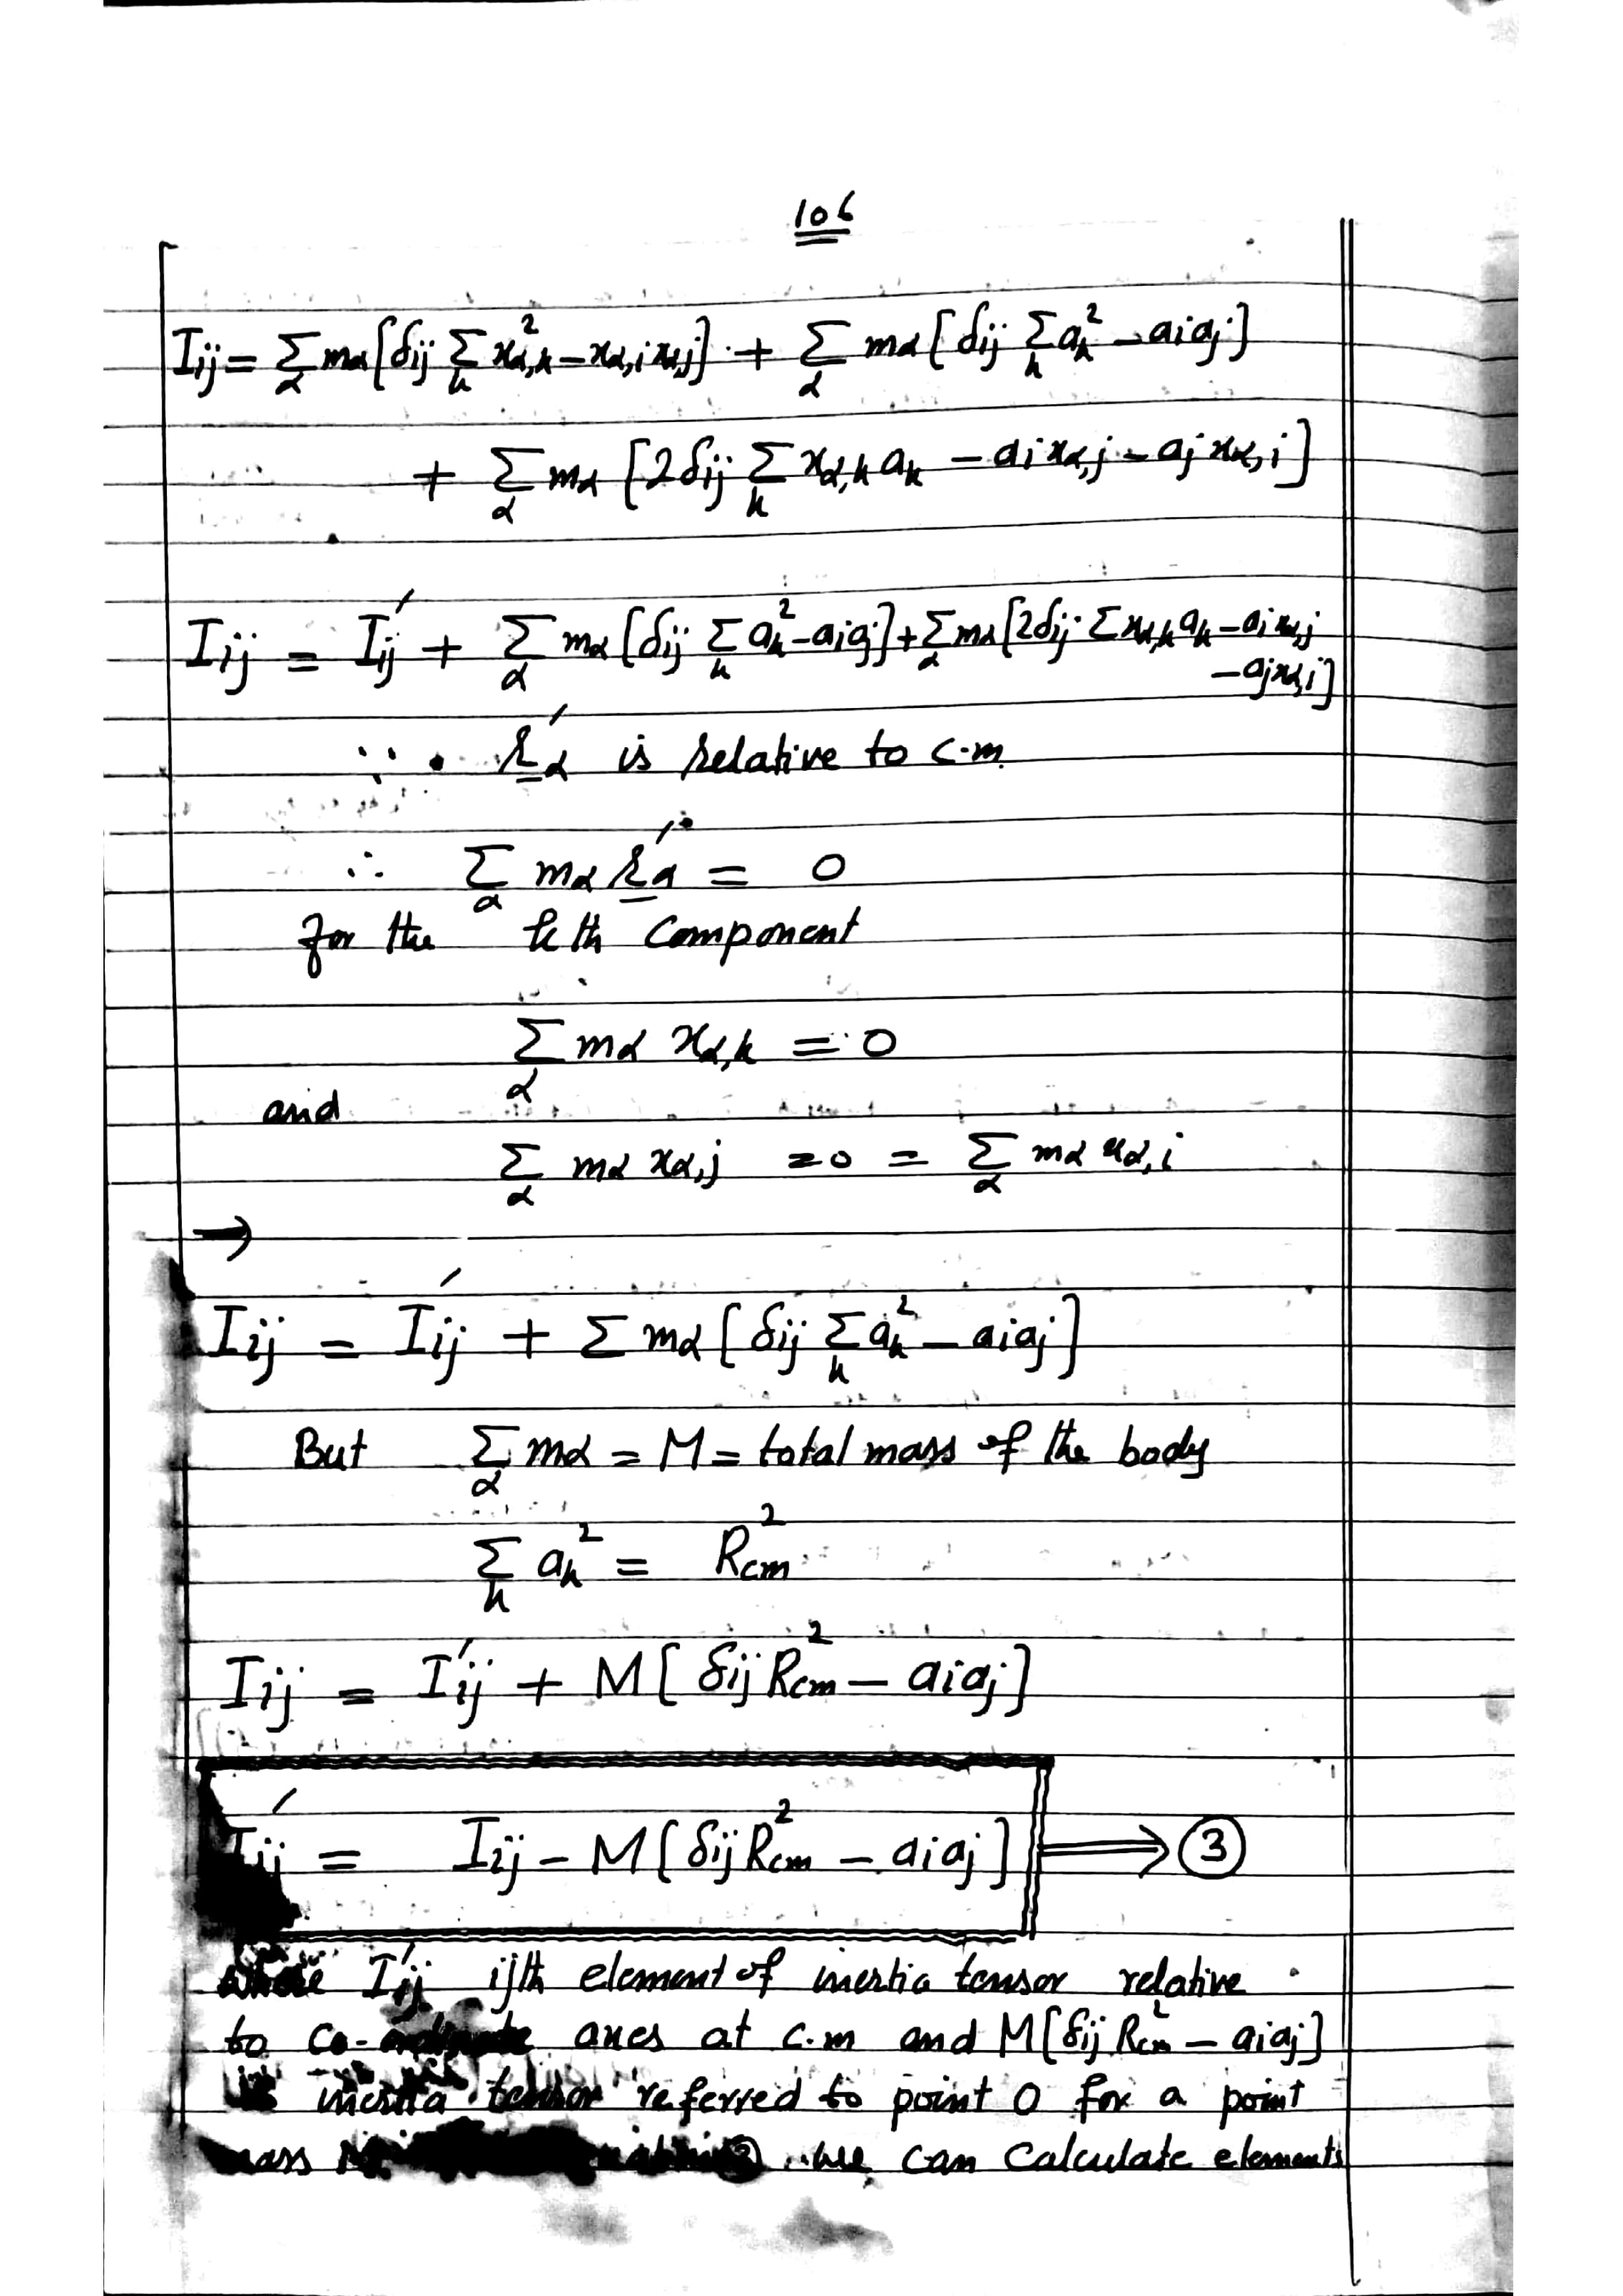 106
Iij = Σα mα [δij Σk x²α,k – xα,i xα,j] + Σα mα [δij Σk ak² – aiaj]
+ Σα mα [2δij Σk xα,k ak – ai xα,j – aj xα,i]
Iij = I′ij + Σα mα [δij Σk ak² – aiaj] + Σα mα [2δij Σ xα,k ak – ai xα,j
– aj xα,i]
∵ r′α is relative to c.m
∴ Σα mα r′α = 0
for the kth component
Σα mα xα,k = 0
and
Σα mα xα,j = 0 = Σα mα xα,i
→
Iij = I′ij + Σ mα [δij Σk ak² – aiaj]
But Σα mα = M = total mass of the body
Σk ak² = R²cm
Iij = I′ij + M[δij R²cm – aiaj]
I′ij = Iij – M[δij R²cm – aiaj] ⟹ ③
where I′ij ijth element of inertia tensor relative
to co-ordinate axes at c.m and M[δij R²cm – aiaj]
is inertia tensor referred to point O for a point
mass M we can calculate elements